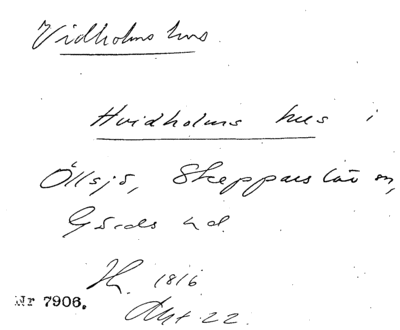 Vidholms hus
Hvidholms hus i
Öllsjö, Skepparslöv sn,
Gärds hd.
1816
Nr 7906. Akt 22.